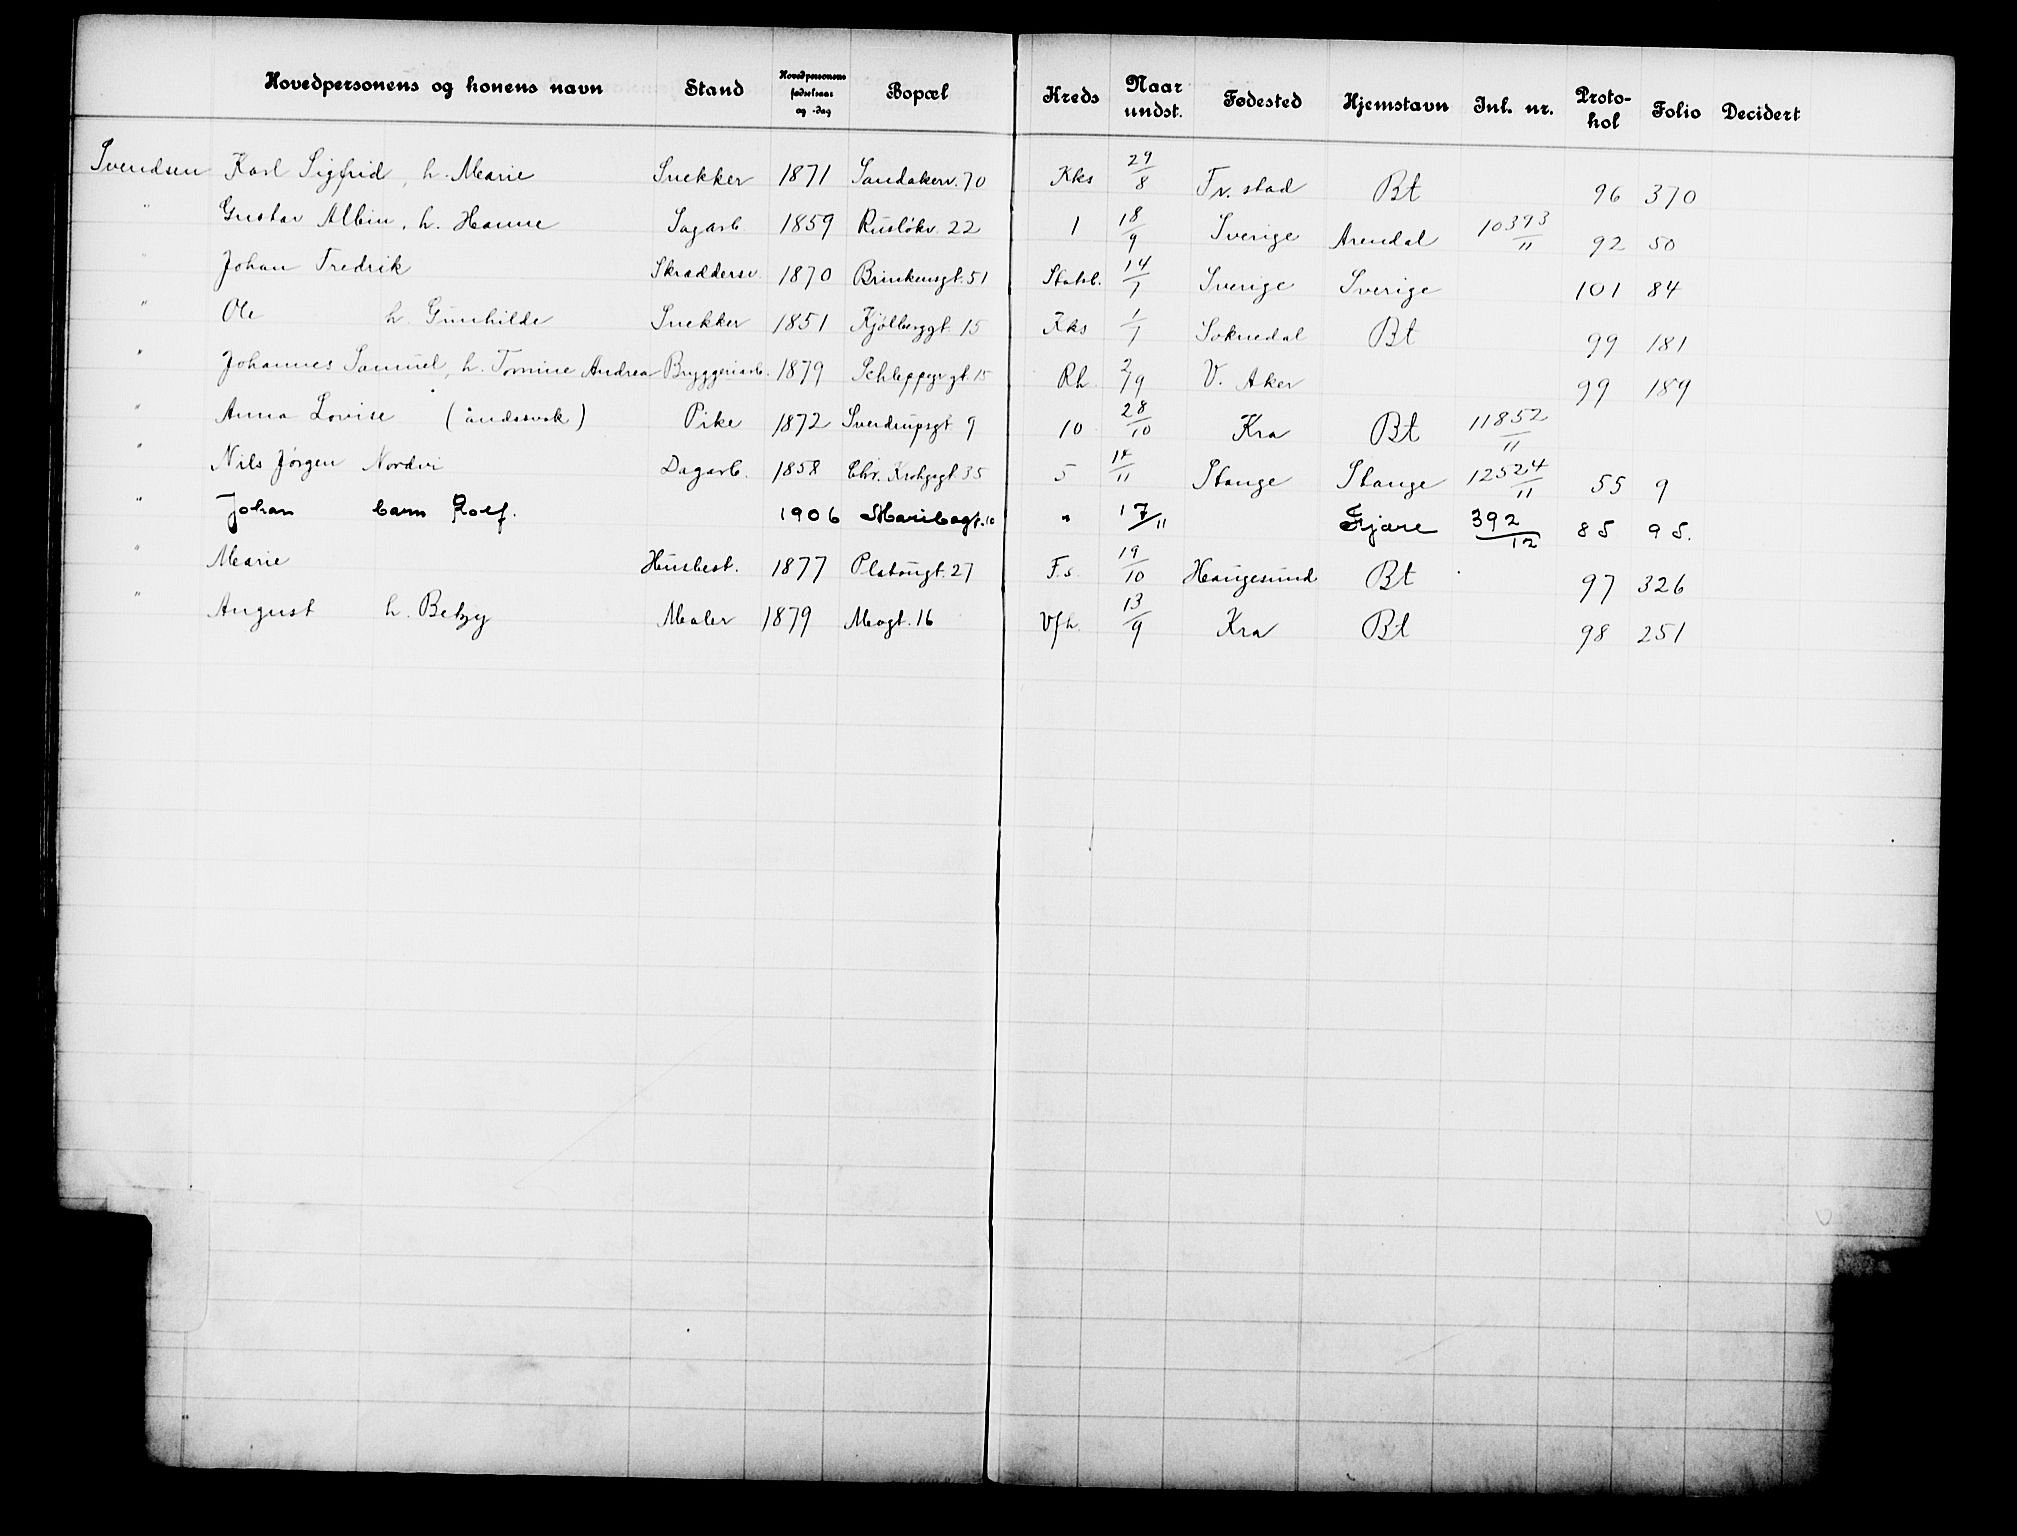 Hovedpersonens og konens navn Stand Hovedpersonens fødselsaar og -dag Bopæl Kreds Naar undst. Fødested Hjemstavn Inl. nr. Protokol Folio Decidert
Svendsen Karl Sigfrid, h. Marie Snekker 1871 Sandakerv. 70 Kks 29/8 Fr. stad Bt 96 370
" Gustav Albin, h. Hanne Sagarb. 1859 Rusløkv. 22 1 18/9 Sverige Arendal 10393/11 92 50
" Johan Fredrik Skreddersv. 1870 Brinkensgt. 51 Statsb. 14/1 Sverige Sverige 101 84
" Ole h. Gunhilde Snekker 1851 Kjølberggt. 15 Kks 1/1 Soknedal Bt 99 181
" Johannes Samuel, h. Tomine Andrea Bryggeriarb. 1879 Schleppegr gt. 15 Rh. 2/9 V. Aker 99 189
" Anna Lovise (åndssvak) Pike 1872 Sverdrupsgt 9 10 28/10 Kra Bt 11852/11
" Nils Jørgen Nordvi Dagarb. 1858 Chr. Krohgsgt. 35 5 14/11 Stange Stange 12524/11 55 9
" Johan barn Rolf. 1906 Maribogt. 10 " 17/11 Fjære 392/12 85 95.
" Marie Husbest. 1877 Platousgt. 27 F.s. 19/10 Haugesund Bt 97 326
" August h. Betzy Maler 1879 Mogt. 16 Vfh. 13/9 Kra Bt 98 251